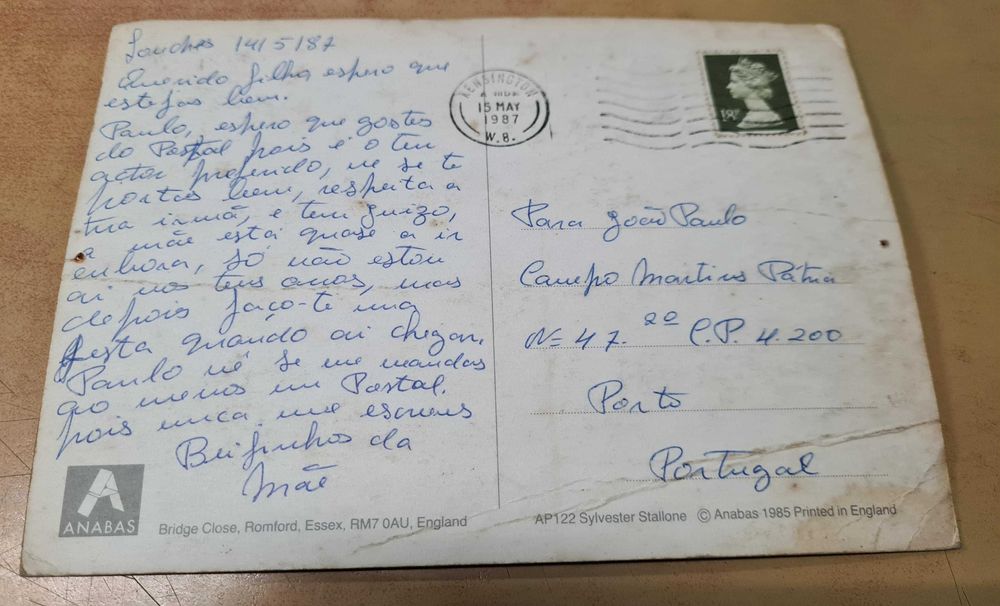 Londres 14/5/87
Querido filho espero que
estejas bem.
Paulo, espero que gostes
do Postal pois é o teu
actor preferido, vê se te
portas bem, respeita a
tua irmã, e tem juizo,
a mãe está quase a ir
embora, só não estou
ai nos teus anos, mas
depois faço-te uma
festa quando ai chegar,
Paulo vê se me mandas
ao menos um Postal.
pois nunca me escreves
Beijinhos da
Mãe
KENSINGTON
15 MAY
1987
W.8.
Para João Paulo
Campo Martires Pátria
Nº 47. 2º C.P. 4.200
Porto
Portugal
ANABAS
Bridge Close, Romford, Essex, RM7 0AU, England
AP122 Sylvester Stallone © Anabas 1985 Printed in England